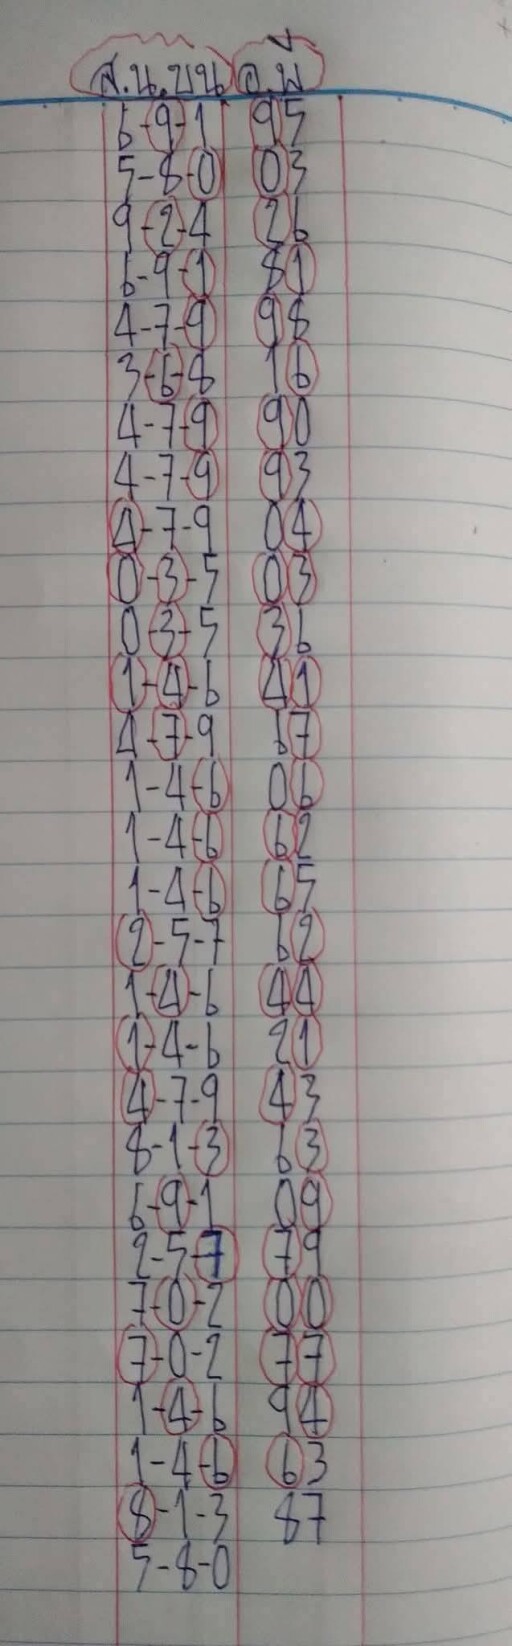 ส.น.บน อ.พ
6-9-1 95
5-8-0 03
9-2-4 26
6-9-1 81
4-7-9 98
3-6-8 16
4-7-9 90
4-7-9 93
4-7-9 04
0-3-5 03
0-3-5 36
1-4-6 41
4-7-9 67
1-4-6 06
1-4-6 62
1-4-6 65
2-5-7 62
1-4-6 44
1-4-6 21
4-7-9 43
8-1-3 63
6-9-1 09
2-5-7 79
7-0-2 00
7-0-2 77
1-4-6 94
1-4-6 63
8-1-3 87
5-8-0